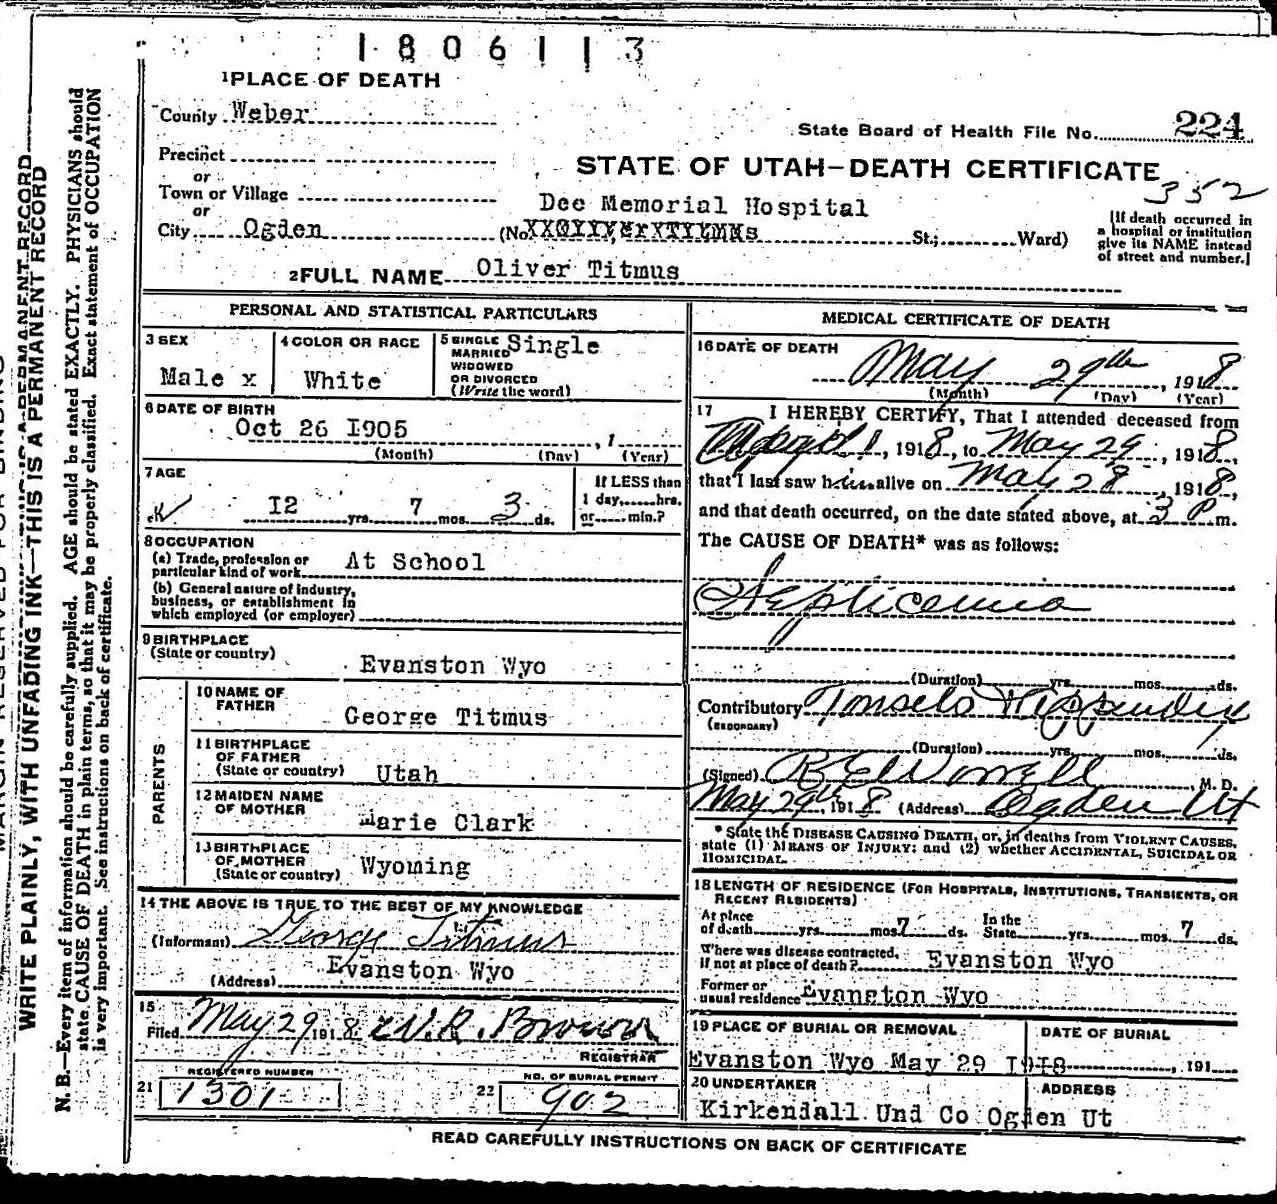 1806113
1 PLACE OF DEATH
County Weber
State Board of Health File No. 224
Precinct
or
STATE OF UTAH-DEATH CERTIFICATE
352
Town or Village
or
Dee Memorial Hospital
City Ogden (No. St.; Ward)
[If death occurred in
a hospital or institution
give its NAME instead
of street and number.]
2 FULL NAME Oliver Titmus
PERSONAL AND STATISTICAL PARTICULARS
3 SEX
Male x
4 COLOR OR RACE
White
5 SINGLE
MARRIED
WIDOWED
OR DIVORCED
(Write the word)
Single
6 DATE OF BIRTH
Oct 26 1905 , 1
(Month) (Day) (Year)
7 AGE
12 yrs. 7 mos. 3 ds.
If LESS than
1 day, hrs.
or min.?
8 OCCUPATION
(a) Trade, profession or
particular kind of work At School
(b) General nature of industry,
business, or establishment in
which employed (or employer)
9 BIRTHPLACE
(State or country) Evanston Wyo
PARENTS
10 NAME OF
FATHER George Titmus
11 BIRTHPLACE
OF FATHER
(State or country) Utah
12 MAIDEN NAME
OF MOTHER Marie Clark
13 BIRTHPLACE
OF MOTHER
(State or country) Wyoming
14 THE ABOVE IS TRUE TO THE BEST OF MY KNOWLEDGE
(Informant) George Titmus
(Address) Evanston Wyo
15
Filed May 29 1918 W.R. Brown
REGISTRAR
REGISTERED NUMBER
21 1301
NO. OF BURIAL PERMIT
22 902
MEDICAL CERTIFICATE OF DEATH
16 DATE OF DEATH
May 29th , 1918
(Month) (Day) (Year)
17 I HEREBY CERTIFY, That I attended deceased from
, 1918, to May 29, 1918,
that I last saw him alive on May 28, 1918,
and that death occurred, on the date stated above, at 3 P m.
The CAUSE OF DEATH* was as follows:
Septicemia
(Duration) yrs. mos. ds.
Contributory
(SECONDARY)
(Duration) yrs. mos. ds.
(Signed) , M. D.
May 29th 1918 (Address) Ogden Ut
* State the DISEASE CAUSING DEATH, or, in deaths from VIOLENT CAUSES,
state (1) MEANS OF INJURY; and (2) whether ACCIDENTAL, SUICIDAL OR
HOMICIDAL.
18 LENGTH OF RESIDENCE (FOR HOSPITALS, INSTITUTIONS, TRANSIENTS, OR
RECENT RESIDENTS)
At place
of death yrs. mos. 7 ds.
In the
State yrs. mos. 7 ds.
Where was disease contracted,
if not at place of death? Evanston Wyo
Former or
usual residence Evanston Wyo
19 PLACE OF BURIAL OR REMOVAL
DATE OF BURIAL
Evanston Wyo May 29 1918 , 191
20 UNDERTAKER
ADDRESS
Kirkendall Und Co Ogden Ut
READ CAREFULLY INSTRUCTIONS ON BACK OF CERTIFICATE
MARGIN RESERVED FOR BINDING
WRITE PLAINLY, WITH UNFADING INK—THIS IS A PERMANENT RECORD
N. B.—Every item of information should be carefully supplied. AGE should be stated EXACTLY. PHYSICIANS should
state CAUSE OF DEATH in plain terms, so that it may be properly classified. Exact statement of OCCUPATION
is very important. See instructions on back of certificate.